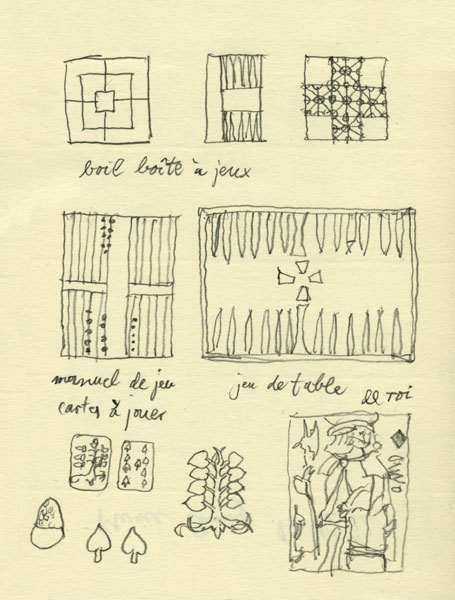 boil boîte à jeux
manuel de jeu
cartes à jouer
jeu de table
le roi